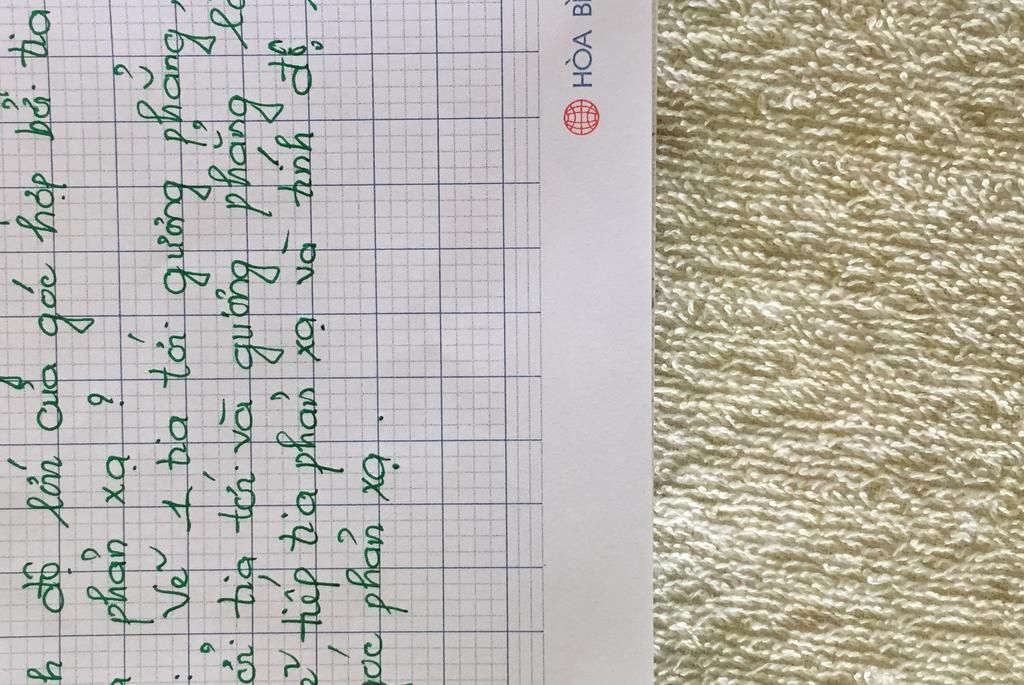 độ lớn của góc hợp bởi tia
phản xạ ?
Vẽ 1 tia tới gương phẳng,
tia tới và gương phẳng
tiếp tia phản xạ và tính độ
góc phản xạ.
HÒA